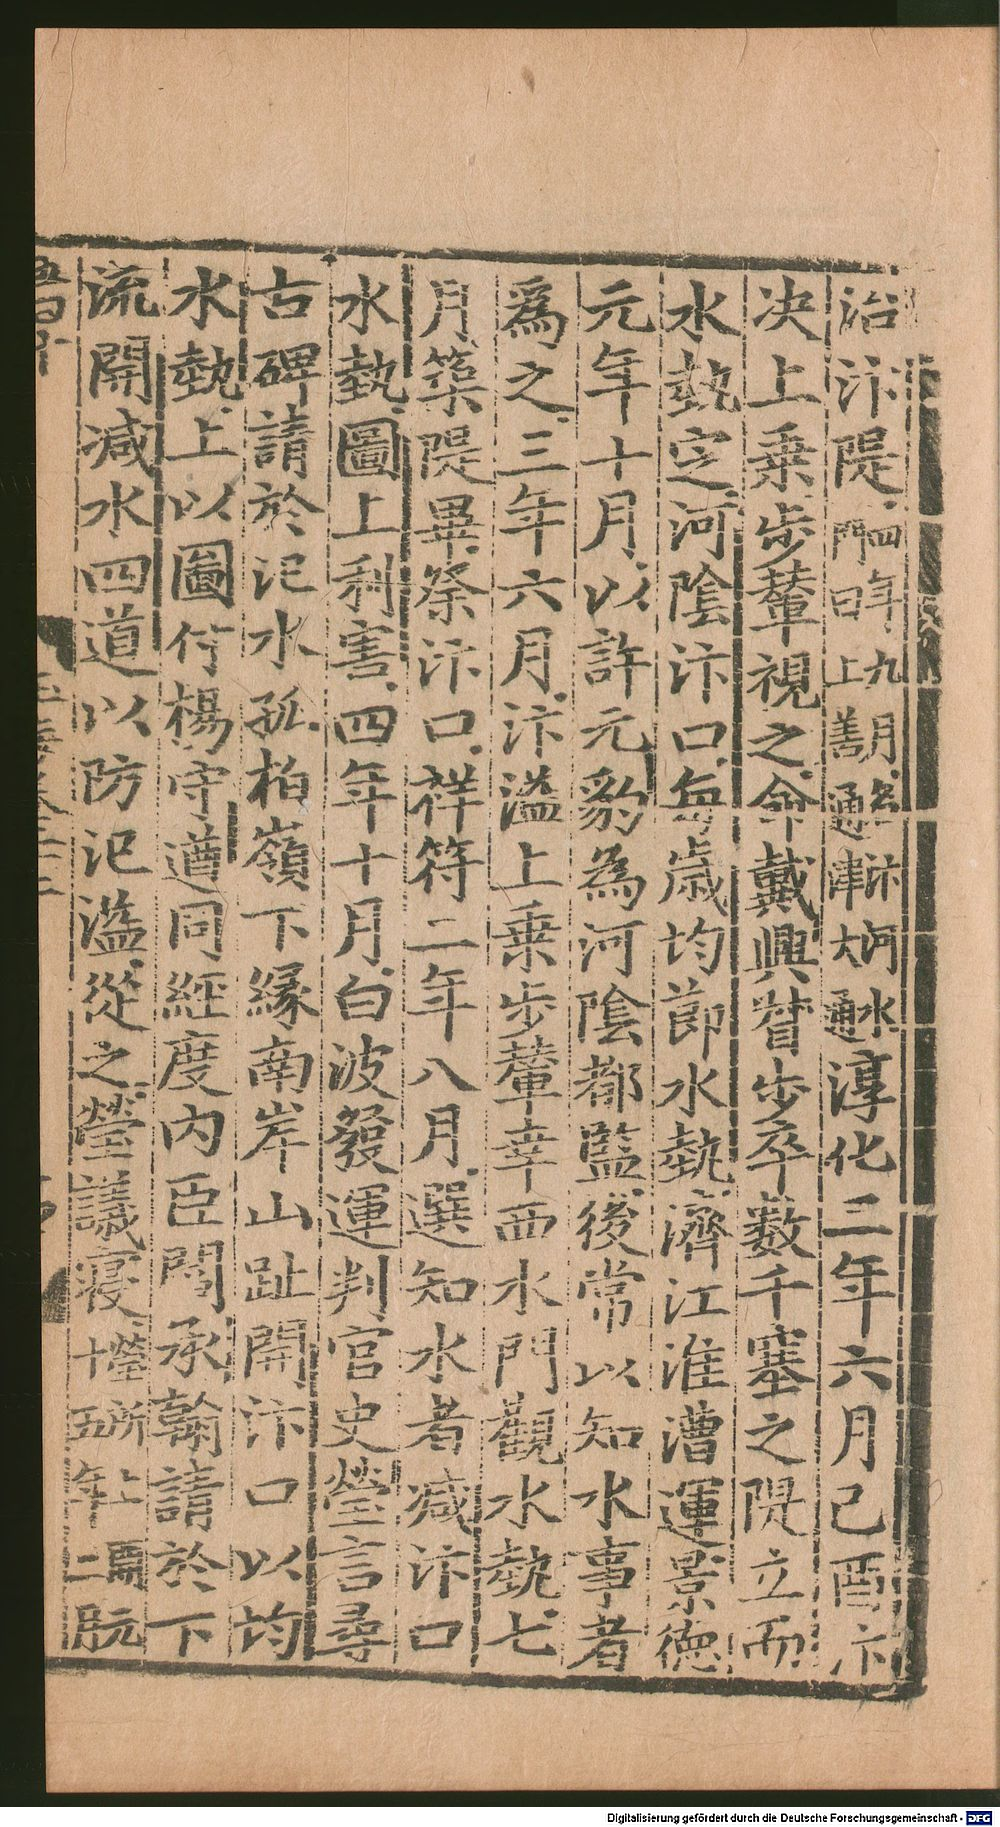 治汴隄四年九月絫汴河水門曰上善通津大通淳化二年六月己酉汴
决上乗步輦視之命戴興督步卒数千塞之隄立而
水埶定河陰汴口每歳均節水埶濟江淮漕運景德
元年十月以許元豹為河陰都監後常以知水事者
爲之三年六月汴溢上乗步輦幸西水門觀水埶七
月築隄畢祭汴口祥符二年八月選知水者减汴口
水埶圖上利害四年十月白波發運判官史瑩言尋
古碑請於汜水孤柏嶺下縁南岸山趾開汴口以均
水埶上以圖付楊守遵同經度内臣閻承翰請於下
流開减水四道以防汜溢從之瑩議寝
Digitalisierung gefördert durch die Deutsche Forschungsgemeinschaft - DFG